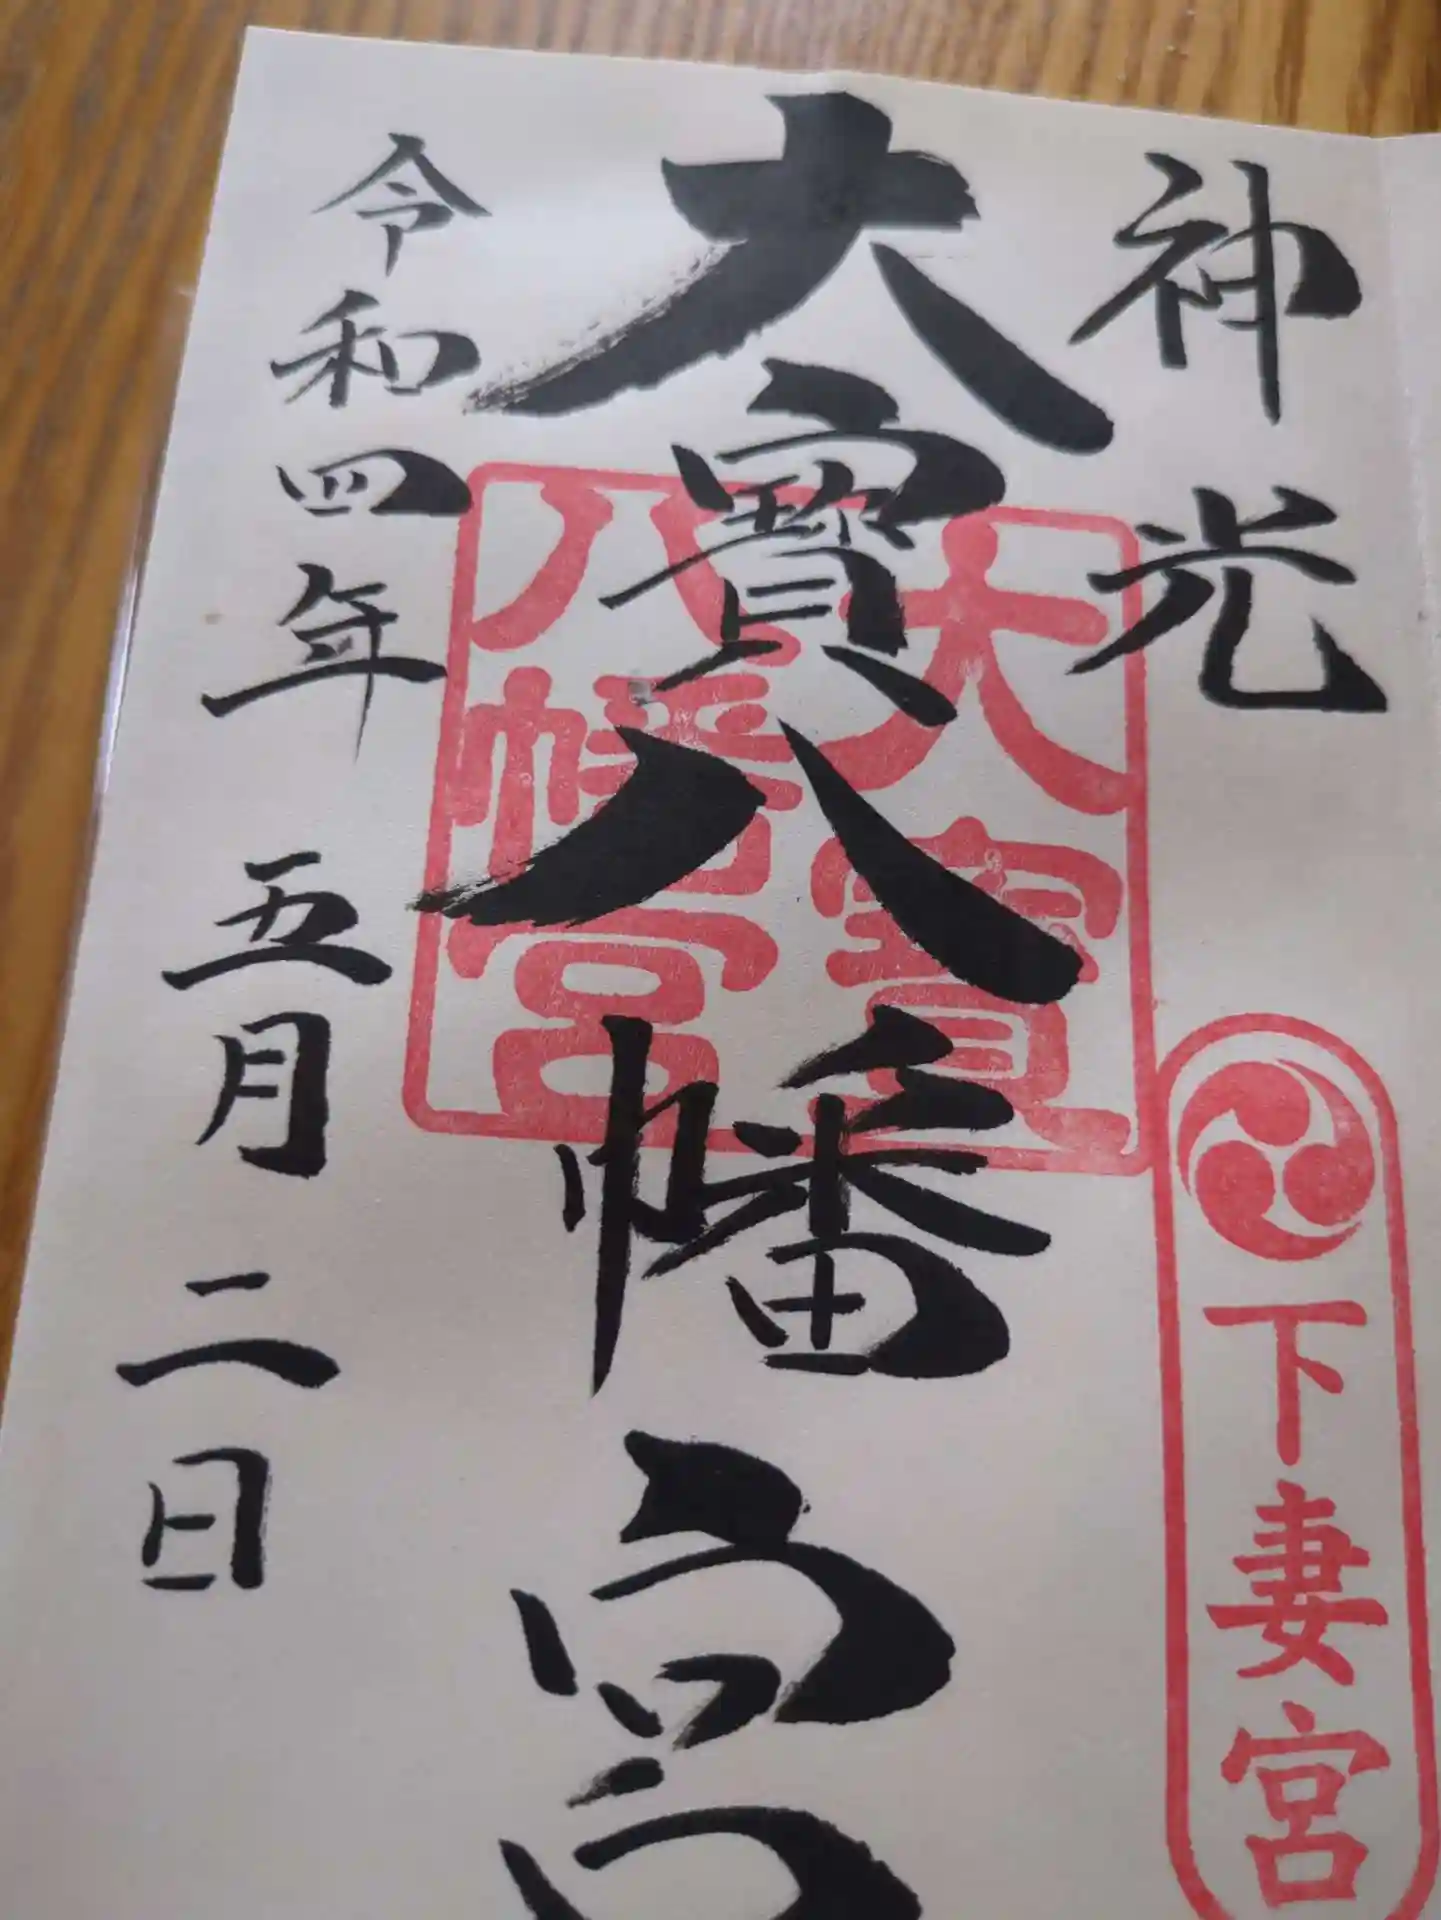 神光
大寳八幡宮
令和四年 五月 二日
大寳
八幡宮
下妻宮